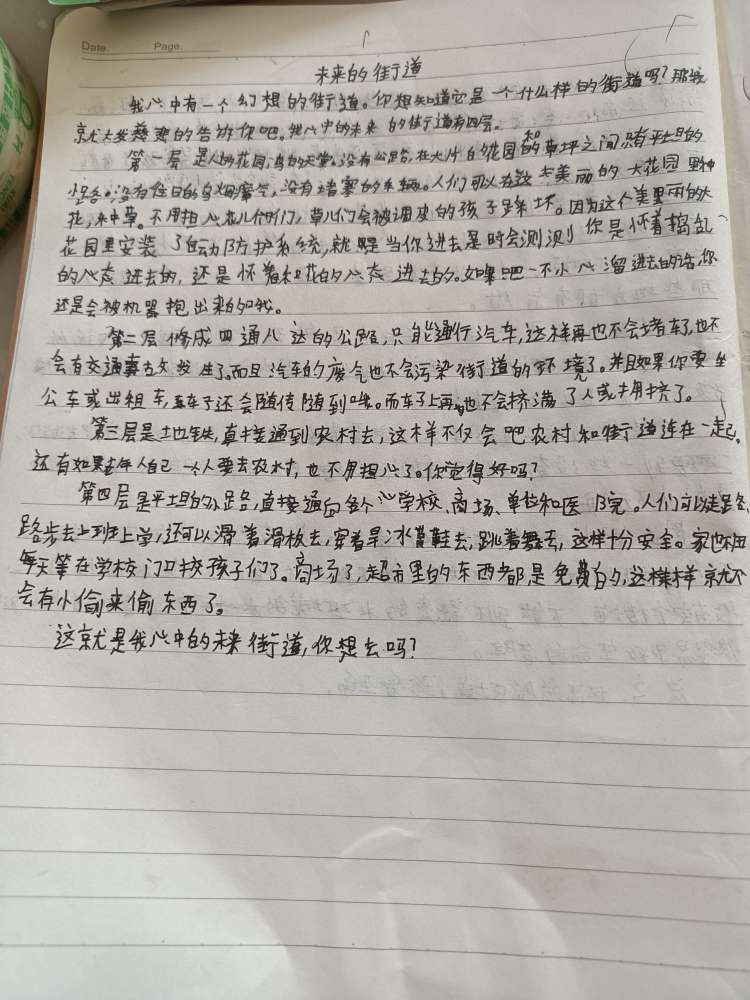 Date.
Page.
未来的街道
我心中有一个幻想的街道。你想知道它是一个什么样的街道吗?那我
就大发慈悲的告诉你吧。我心中的未来的街道有四层。
第一层是人的花园,鸟的天堂。没有公路,在大片的花园和草坪之间只有平坦的
小路。没有往日的乌烟瘴气,没有堵塞的车辆。人们可以去美丽的大花园里种
花,种草。不用担心花儿们,草儿们会被调皮的孩子踩坏。因为这个美丽的大
花园里安装了自动防护系统,就是当你进去是时会测测你是怀着捣乱
的心态进去的,还是怀着和花的心态进去的。如果吧一不小心溜进去的话,你
还是会被机器抱出来的哦。
第二层修成四通八达的公路,只能通行汽车,这样再也不会堵车了,也不
会有交通事故发生了。而且汽车的废气也不会污染街道的环境了。并且如果你要坐
公车或出租车,车子还会随传随到哦。而车子上再也不会挤满了人或拥挤了。
第三层是地铁,直接通到农村去,这样不仅会吧农村和街道连在一起。
还有如果老年人自己一个人要去农村,也不用担心了。你觉得好吗?
第四层是平坦的小路,直接通向各个学校、商场、单位和医院。人们可以走路
路步去上班上学,还可以滑着滑板去,穿着旱冰鞋去,跳着舞去,这样十分安全。家也不用
每天等在学校门口接孩子们了。商场了,超市里的东西都是免费的,这样就不
会有小偷来偷东西了。
这就是我心中的未来街道,你想去吗?